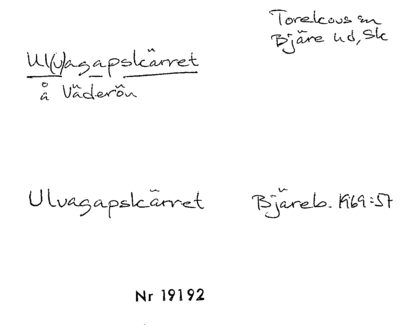 Torekovs sn
Bjäre hd, Sk
Ul(v)agapskärret
å Väderön
Ulvagapskärret Bjäreb. 1969:57
Nr 19192